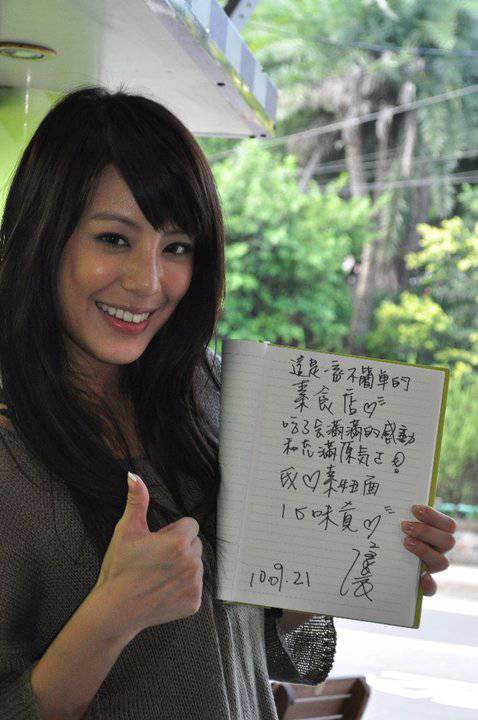 這是一家不簡單的
素食店♡
吃了會滿滿的感動
和充滿原気
我♡素牛面
10.09.21